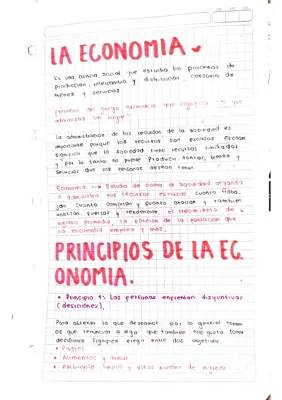 LA ECONOMIA
Es una ciencia social que estudia los procesos de
producción, intercambio y distribución, consumo de
bienes y servicios.
proviene del griego que significa "El que
administra un hogar"
La administración de los recursos de la sociedad es
importante porque los recursos son escasos. Escasez
significa que la sociedad tiene recursos limitados
y por lo tanto no puede Producir todos los bienes y
Servicios que las personas desean tener.
Economia → Estudio de como la sociedad
administra sus recursos escasos. Cuanto
cuanto compran y cuanto ahorran y tambien
El crecimiento de
ingreso promedio, la fracción de la población que
no encuentra empleo y más.
PRINCIPIOS DE LA EC
ONOMIA.
• Principio 1: Las personas enfrentan disyuntivas
(decisiones).
Para obtener lo que deseamos, por lo general tenemos
que renunciar a algo que tambien nos gusta tomar
decisiones significa elegir entre dos objetivos
• Padres
• Alimentos y
• Ambiente limpio y altos niveles de ingreso